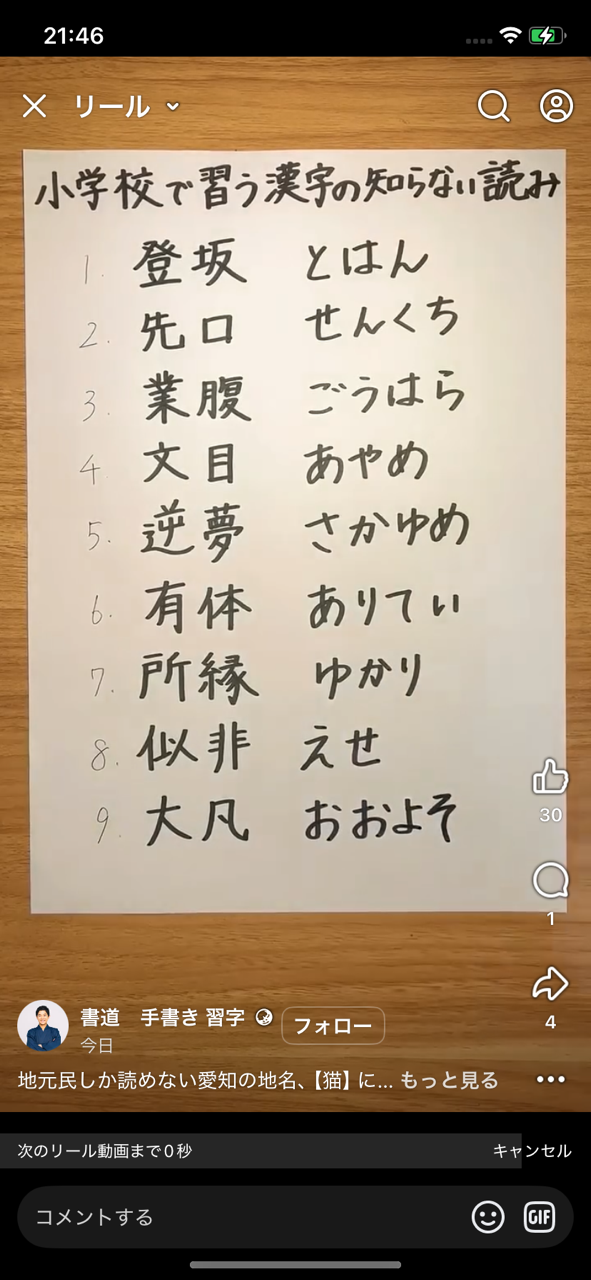 21:46
リール
小学校で習う漢字の知らない読み
1. 登坂 とはん
2. 先口 せんくち
3. 業腹 ごうはら
4 文目 あやめ
5. 逆夢 さかゆめ
6. 有体 ありてい
7. 所縁 ゆかり
8. 似非 えせ
9. 大凡 おおよそ
30
1
4
書道 手書き 習字 フォロー
今日
地元民しか読めない愛知の地名、【猫】に... もっと見る
次のリール動画まで0秒 キャンセル
コメントする GIF